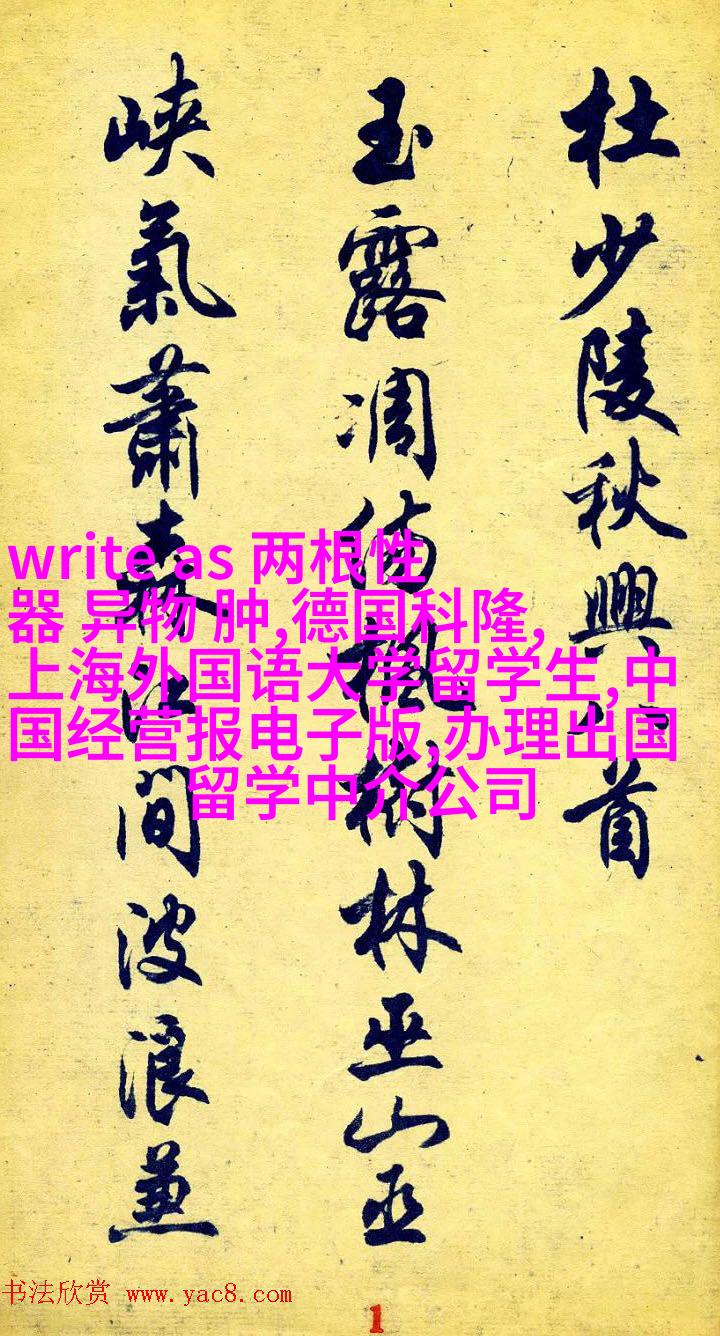 杜少陵秋興八首
玉露凋傷楓樹林巫山巫
峽氣蕭森江間波浪兼
write as 两根性
器 异物 肿,德国科隆,
上海外国语大学留学生,中
国经营报电子版,办理出国
留学中介公司
书法欣赏 www.yac8.com
1